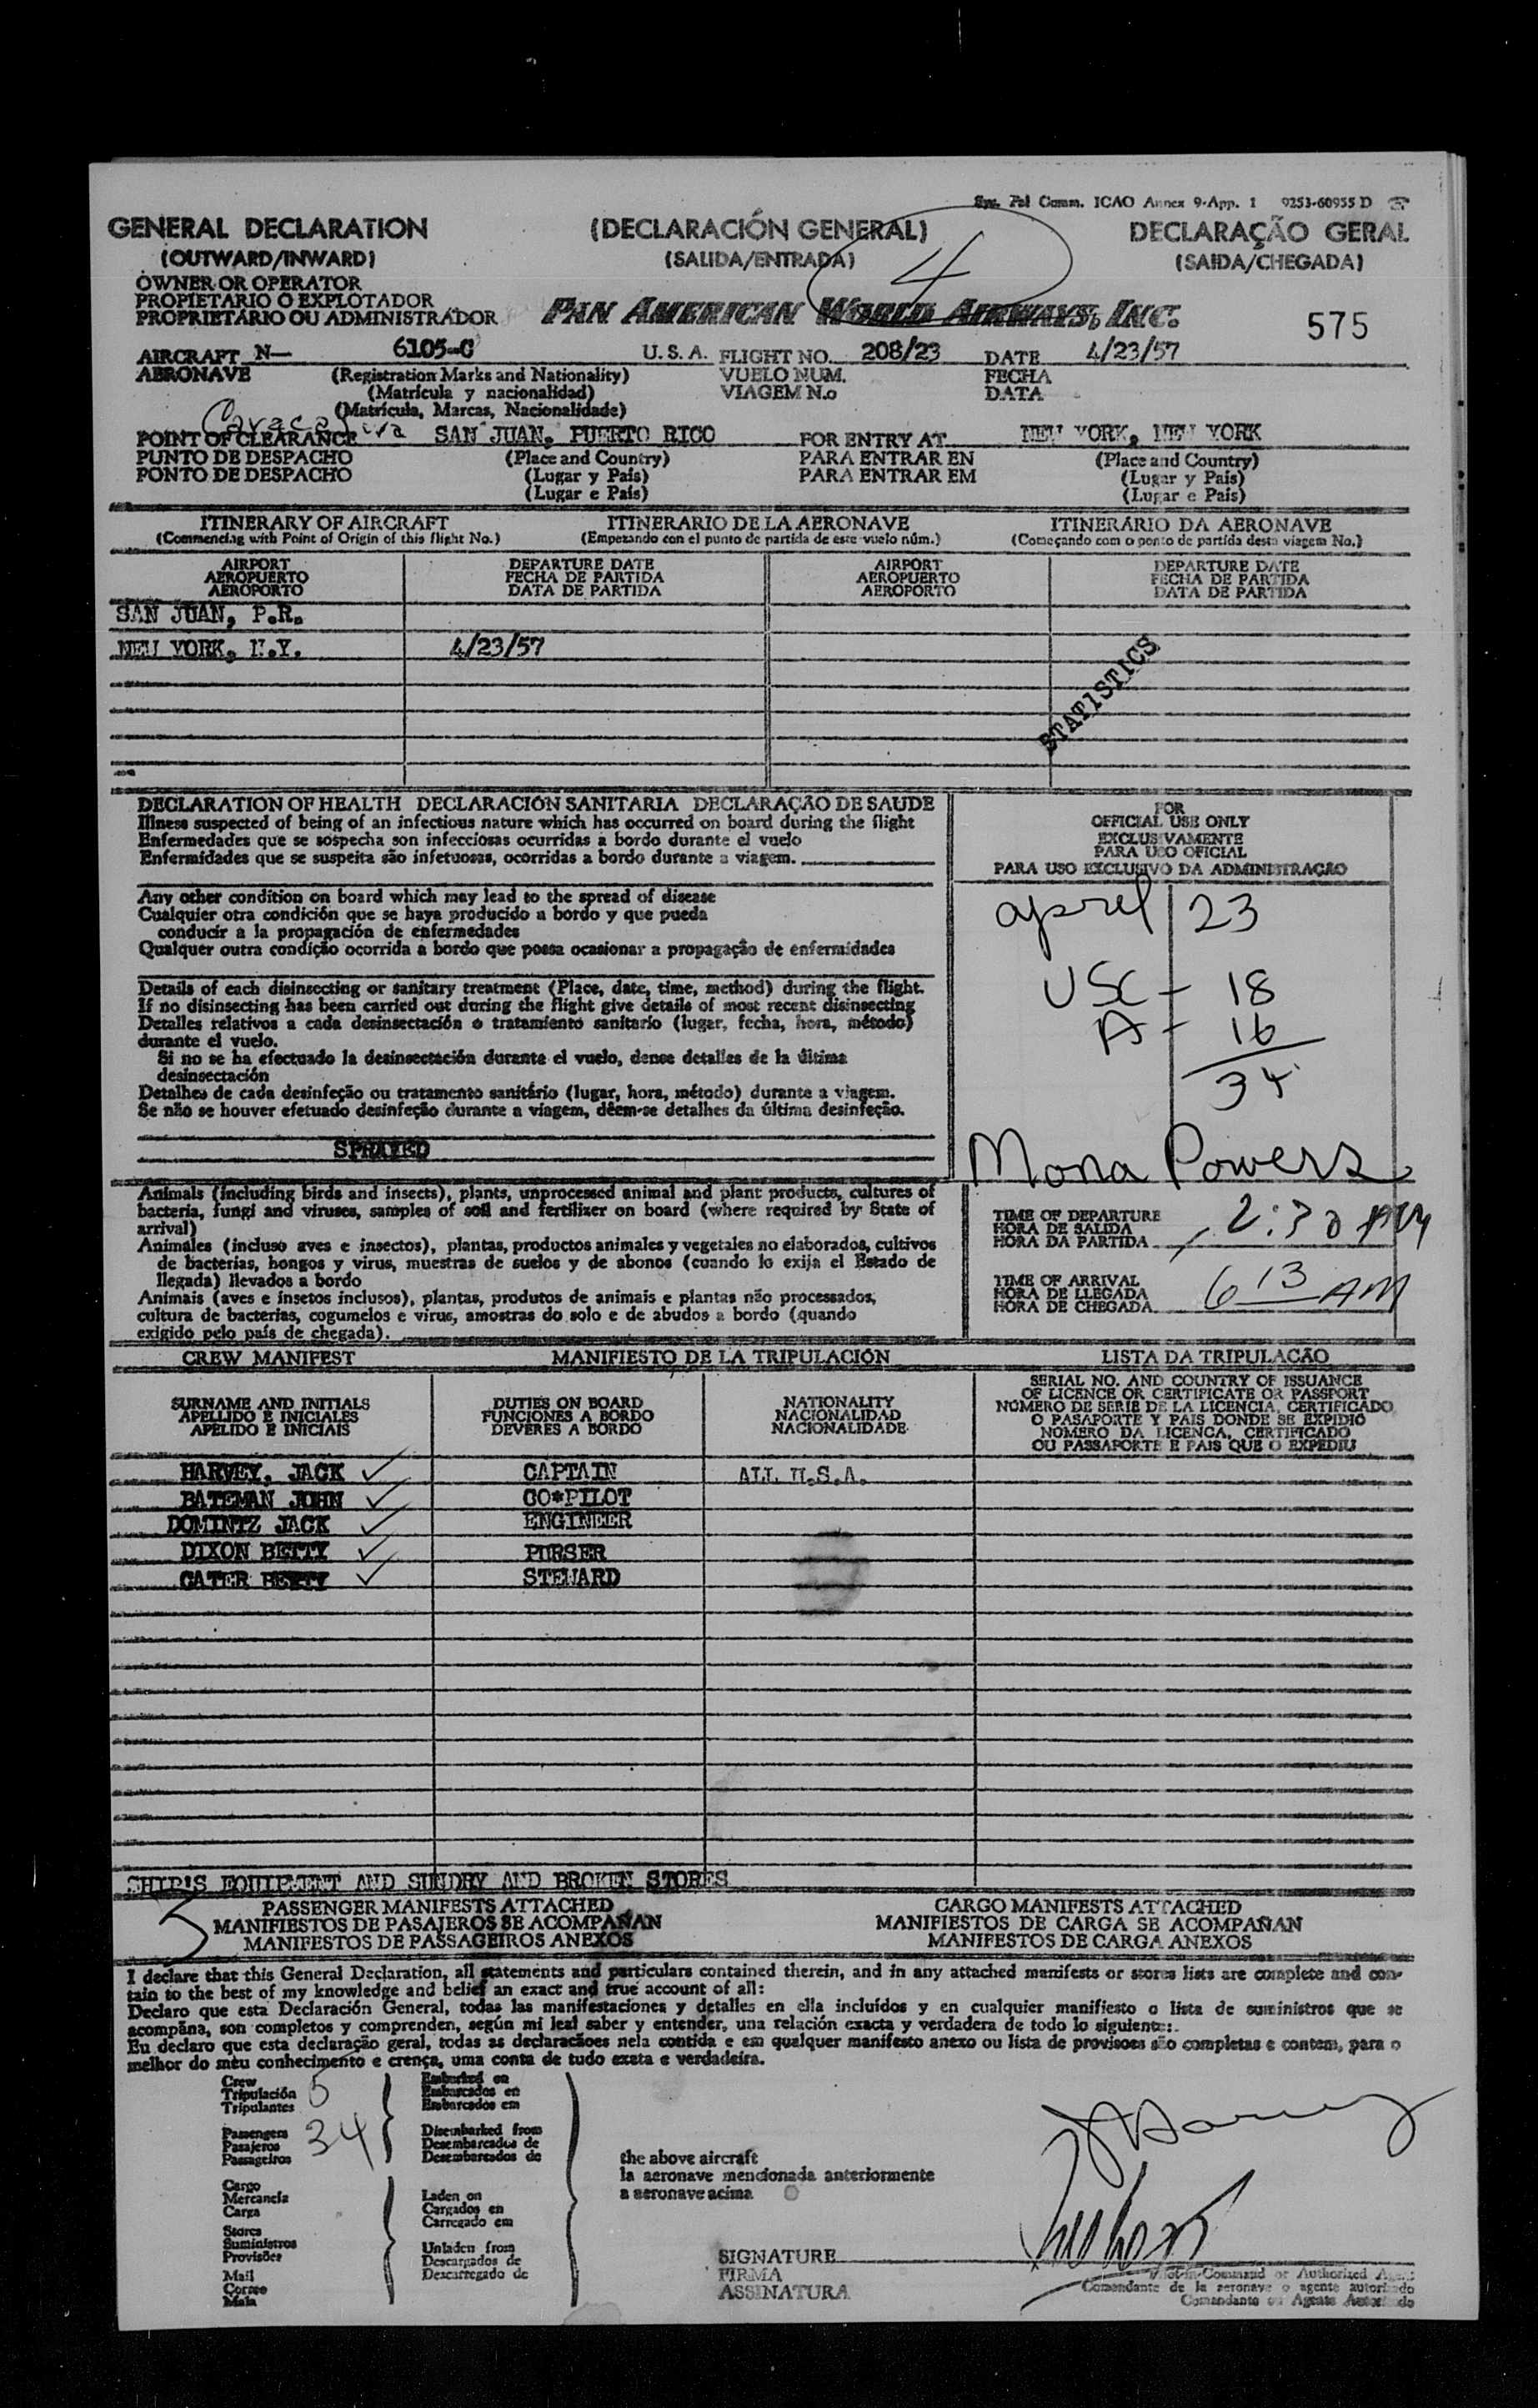 Comm. ICAO Annex 9-App. 1 9253-60955 D
GENERAL DECLARATION (DECLARACIÓN GENERAL) DECLARAÇÃO GERAL
(OUTWARD/INWARD) (SALIDA/ENTRADA) (SAIDA/CHEGADA)
4
OWNER OR OPERATOR
PROPIETARIO O EXPLOTADOR
PROPRIETÁRIO OU ADMINISTRADOR PAN AMERICAN WORLD AIRWAYS, INC. 575
AIRCRAFT N— 6105-C U. S. A. FLIGHT NO. 208/23 DATE 4/23/57
AERONAVE (Registration Marks and Nationality) VUELO NUM. FECHA
(Matrícula y nacionalidad) VIAGEM N.o DATA
(Matrícula, Marcas, Nacionalidade)
POINT OF CLEARANCE SAN JUAN, PUERTO RICO FOR ENTRY AT NEW YORK, NEW YORK
PUNTO DE DESPACHO (Place and Country) PARA ENTRAR EN (Place and Country)
PONTO DE DESPACHO (Lugar y País) PARA ENTRAR EM (Lugar y País)
(Lugar e País) (Lugar e País)
ITINERARY OF AIRCRAFT ITINERARIO DE LA AERONAVE ITINERÁRIO DA AERONAVE
(Commencing with Point of Origin of this flight No.) (Empezando con el punto de partida de este vuelo núm.) (Começando com o ponto de partida desta viagem No.)
AIRPORT DEPARTURE DATE AIRPORT DEPARTURE DATE
AEROPUERTO FECHA DE PARTIDA AEROPUERTO FECHA DE PARTIDA
AEROPORTO DATA DE PARTIDA AEROPORTO DATA DE PARTIDA
SAN JUAN, P.R.
NEW YORK, N.Y. 4/23/57
STATISTICS
DECLARATION OF HEALTH DECLARACIÓN SANITARIA DECLARAÇÃO DE SAUDE
Illness suspected of being of an infectious nature which has occurred on board during the flight
Enfermedades que se sospecha son infecciosas ocurridas a bordo durante el vuelo
Enfermidades que se suspeita são infetuosas, ocorridas a bordo durante a viagem.
Any other condition on board which may lead to the spread of disease
Cualquier otra condición que se haya producido a bordo y que pueda
conducir a la propagación de enfermedades
Qualquer outra condição ocorrida a bordo que possa ocasionar a propagação de enfermidades
Details of each disinsecting or sanitary treatment (Place, date, time, method) during the flight.
If no disinsecting has been carried out during the flight give details of most recent disinsecting
Detalles relativos a cada desinsectación o tratamiento sanitario (lugar, fecha, hora, método)
durante el vuelo.
Si no se ha efectuado la desinsectación durante el vuelo, dense detalles de la última
desinsectación
Detalhes de cada desinfeção ou tratamento sanitário (lugar, hora, método) durante a viagem.
Se não se houver efetuado desinfeção durante a viagem, dêem-se detalhes da última desinfeção.
SPRAYED
FOR
OFFICIAL USE ONLY
EXCLUSIVAMENTE
PARA USO OFICIAL
PARA USO EXCLUSIVO DA ADMINISTRAÇÃO
April 23
USC - 18
A - 16
34
Mona Powers
Animals (including birds and insects), plants, unprocessed animal and plant products, cultures of
bacteria, fungi and viruses, samples of soil and fertilizer on board (where required by State of
arrival)
Animales (incluso aves e insectos), plantas, productos animales y vegetales no elaborados, cultivos
de bacterias, hongos y virus, muestras de suelos y de abonos (cuando lo exija el Estado de
llegada) llevados a bordo
Animais (aves e insetos inclusos), plantas, produtos de animais e plantas não processados,
cultura de bacterias, cogumelos e virus, amostras do solo e de abudos a bordo (quando
exigido pelo país de chegada).
TIME OF DEPARTURE
HORA DE SALIDA 2:30 AM
HORA DA PARTIDA
TIME OF ARRIVAL
HORA DE LLEGADA 6 13 AM
HORA DE CHEGADA
CREW MANIFEST MANIFIESTO DE LA TRIPULACIÓN LISTA DA TRIPULACÃO
SURNAME AND INITIALS DUTIES ON BOARD NATIONALITY
APELLIDO E INICIALES FUNCIONES A BORDO NACIONALIDAD
APELIDO E INICIAIS DEVERES A BORDO NACIONALIDADE
SERIAL NO. AND COUNTRY OF ISSUANCE
OF LICENCE OR CERTIFICATE OR PASSPORT
NÚMERO DE SERIE DE LA LICENCIA, CERTIFICADO
O PASAPORTE Y PAIS DONDE SE EXPIDIÓ
NÚMERO DA LICENCA, CERTIFICADO
OU PASSAPORTE E PAIS QUE O EXPEDIU
HARVEY, JACK ✓ CAPTAIN ALL U.S.A.
BATEMAN JOHN ✓ CO*PILOT
DOMINTZ JACK ✓ ENGINEER
DIXON BETTY ✓ PURSER
CATER BETTY ✓ STEWARD
SHIP'S EQUIPMENT AND SUNDRY AND BROKEN STORES
5 PASSENGER MANIFESTS ATTACHED CARGO MANIFESTS ATTACHED
MANIFIESTOS DE PASAJEROS SE ACOMPAÑAN MANIFIESTOS DE CARGA SE ACOMPAÑAN
MANIFESTOS DE PASSAGEIROS ANEXOS MANIFESTOS DE CARGA ANEXOS
I declare that this General Declaration, all statements and particulars contained therein, and in any attached manifests or stores lists are complete and con-
tain to the best of my knowledge and belief an exact and true account of all:
Declaro que esta Declaración General, todas las manifestaciones y detalles en ella incluídos y en cualquier manifiesto o lista de suministros que se
acompãna, son completos y comprenden, según mi leal saber y entender, una relación exacta y verdadera de todo lo siguiente:
Eu declaro que esta declaração geral, todas as declaracãoes nela contida e em qualquer manifesto anexo ou lista de provisoes são completas e contem, para o
melhor do meu conhecimento e crença, uma conta de tudo exata e verdadeira.
Crew
Tripulación 5
Tripulantes
Passengers
Pasajeros 34
Passageiros
Cargo
Mercancía
Carga
Stores
Suministros
Provisões
Mail
Correo
Mala
Embarked on
Embarcados en
Embarcados em
Disembarked from
Desembarcados de
Desembarcados de
Laden on
Cargados en
Carregado em
Unladen from
Descargados de
Descarregado de
the above aircraft
la aeronave mencionada anteriormente
a aeronave acima
SIGNATURE
FIRMA
ASSINATURA
Pilot-in-Command or Authorized Agent
Comandante de la aeronave o agente autorizado
Comandante ou Agente Autorizado